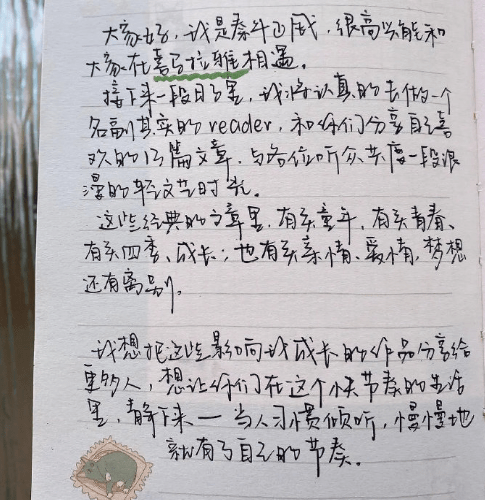 大家好，我是秦斗四威，很高兴能和
大家在喜马拉雅相遇。
接下来一段日子里，我将认真的去做一个
名副其实的reader，和你们分享自己喜
欢的12篇文章，与各位听众共度一段浪
漫的轻文艺时光。
这些经典的文章里，有关童年、有关青春、
有关四季、成长；也有关亲情、爱情、梦想
还有离别。
我想把这些影响我成长的作品分享给
更多人，想让你们在这个快节奏的生活
里，静下来一当人习惯倾听，慢慢地
就有了自己的节奏。